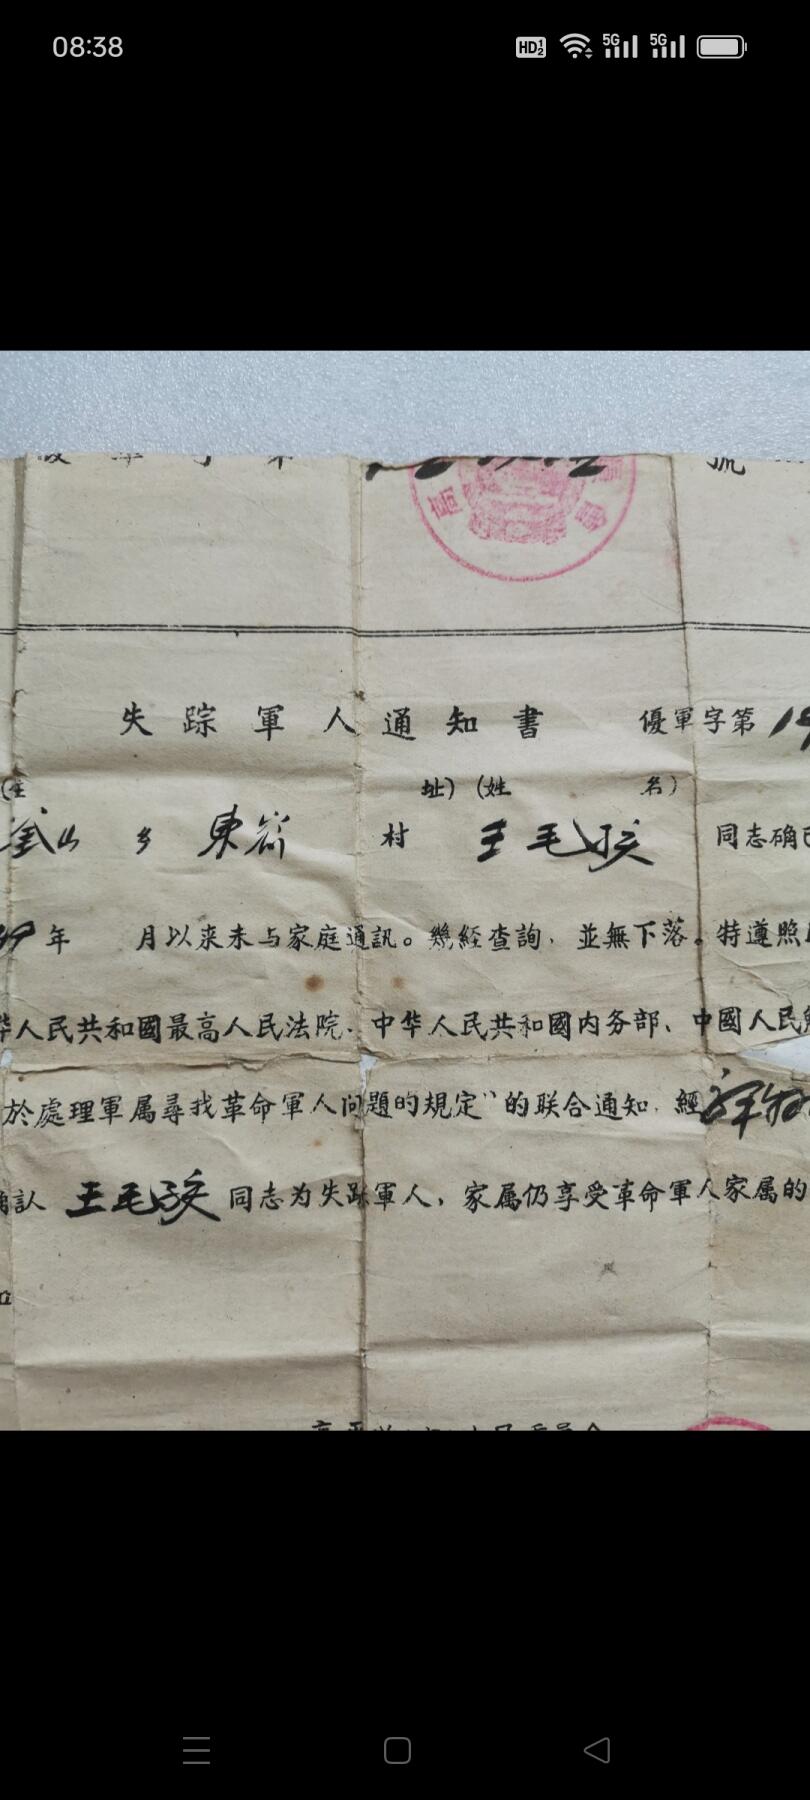 08:38
HD 5G 5G
號
高 會
失踪軍人通知書 優軍字第19
址）（姓 名）
釜山 乡 東 村 王毛孩 同志确已
49年 月以来未与家庭通訊。幾經查詢，並無下落。特遵照
华人民共和國最高人民法院、中华人民共和國内务部、中國人民
於處理軍属尋找革命軍人问題的規定"的联合通知，經
訒 王毛孩 同志为失踪軍人，家属仍享受革命軍人家属的